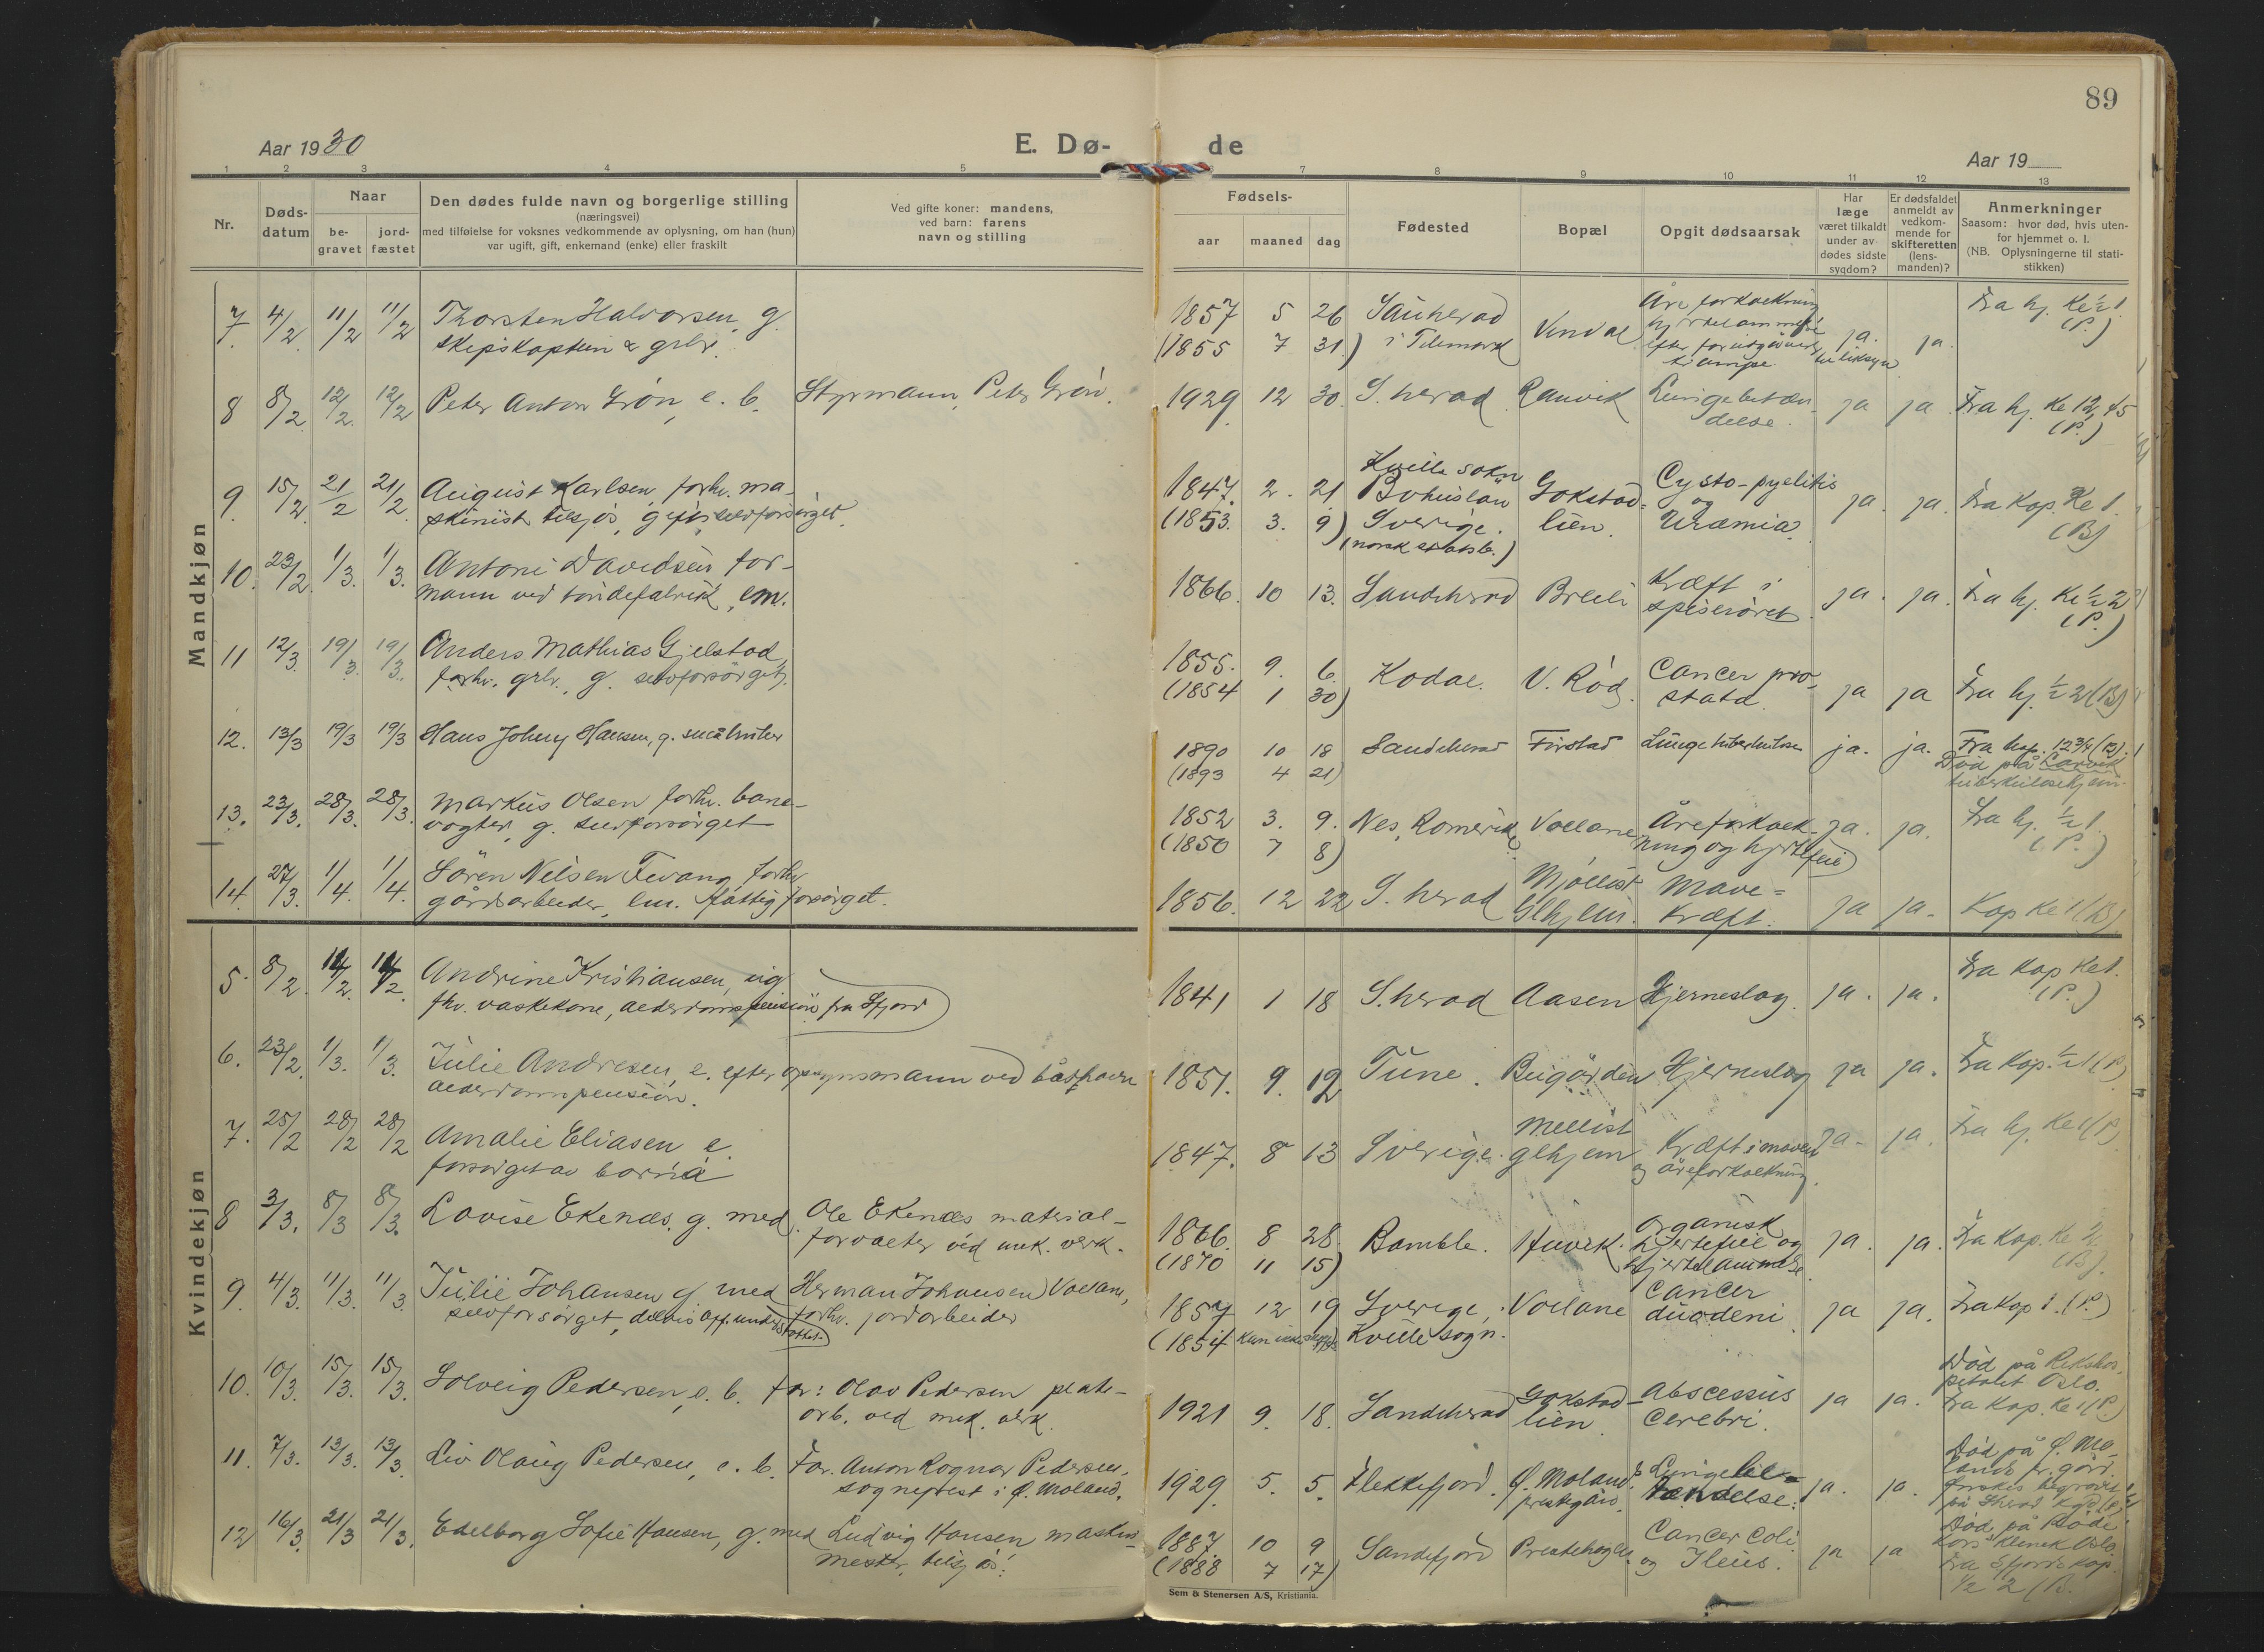 89
Aar 1930
E. Dø-
de
Aar 19
1 2 3 4 5
7 8 9 10 11 12 13
Nr.
Døds-
datum
Naar
be-
gravet
jord-
fæstet
Den dødes fulde navn og borgerlige stilling
(næringsvei)
med tilføielse for voksnes vedkommende av oplysning, om han (hun)
var ugift, gift, enkemand (enke) eller fraskilt
Ved gifte koner: mandens,
ved barn: farens
navn og stilling
Fødsels-
aar maaned dag
Fødested
Bopæl
Opgit dødsaarsak
Har
læge
været tilkaldt
under av
dødes sidste
sygdom?
Er dødsfaldet
anmeldt av
vedkom-
mende for
skifteretten
(lens-
manden)?
Anmerkninger
Saasom: hvor død, hvis uten-
for hjemmet o. l.
(NB. Oplysningerne til stati-
stikken)
Mandkjøn
7. 4/2 11/2 11/2 Thorsten Halvorsen, g.
skipskaptein & grbr.
1857 5 26 Sauherad
(1855 7 31) i Telemark
Åreforkalkning
hjertelammelse
ja. ja.
til liksyn
Fra hj. Kl ½ 1.
(P.)
8 8/2 12/2 12/2 Peter Anton Grön, e. b. Styrmann, Peter Grön.
1929 12 30 S. herad Ranvik Lungebetæn-
delse.
ja ja Fra hj. Kl 12,45
(P.)
9. 15/2 21/2 21/2 August Karlsen, forhv. ma-
skinist tilsjös, gift, selvforsörget.
1847. 2. 21 Kville sokn
Bohuslän
(1853. 3. 9) Sverige.
(norsk statsb.)
Gokstad-
lien.
Cysto-pyelitis
og
Uræmia.
ja. ja. Fra Kap. Kl 1.
(B)
10. 23/2 1/3. 1/3. Antoni Davidsen for-
mann ved töndefabrik, em.
1866. 10 13. Sandeherad Breili Kræft i
spiseröret.
ja. ja. Fra hj. Kl ½ 2
(P.)
11 12/3. 19/3. 19/3. Anders Mathias Gjelstad,
forhv. grbr., g. selvforsörget.
1855. 9. 6.
(1854 1 30)
Kodal. V. Röd. Cancer pro-
stata.
ja ja Fra hj. ½ 2 (B)
12. 13/3 19/3 19/3 Hans Johny Hansen, g. småbruker
1890 10 18
(1893 4 21)
Sandeherad Furstad Lungetuberkulose ja. ja.
Fra kap. 12¾ (B).
Död på Larvik
tuberkulosehjem.
13. 23/3. 28/3. 28/3. Markus Olsen forhv. bane-
vogter, g. selvforsörget
1852 3. 9.
(1850 7 8)
Nes, Romerike Åreforkalk-
ning og hjertefeil
ja. ja. Fra hj. ½ 1.
(P.)
14. 27/3. 1/4. 1/4. Sören Nilsen Tvang, forhv.
gårdsarbeider, em. fattigforsörget.
1856. 12 22 S. herad
Glhjem.
Mave-
kræft.
ja ja. Kap Kl 1 (B)
Kvindekjøn
5. 8/2. 14/2. 14/2. Andrine Kristiansen, ug.
fhv. vaskekone, alderdomspension fra Sfjord
1841 1 18 S. herad Aasen Hjerneslag. ja. ja.
Fra Kap Kl 1.
(P.)
6. 23/2. 1/3. 1/3. Julie Andresen, e. efter opsynsmann ved båthavn
alderdomspension.
1851. 9. 12 Tune. Bugården Hjerneslag ja ja. Fra Kap. ½ 1 (P)
7. 25/2 28/2 28/2 Amalie Eliasen e.
forsörget av barna
1847. 8 13 Sverige. glhjem Kræft i maven
og åreforkalkning.
Ja. ja. Fra hj. Kl 1 (P.)
8 3/3. 8/3 8/3. Lovise Ekenæs, g. med. Ole Ekenæs material-
forvalter ved mek. verk.
1866. 8 28
(1870 11 15)
Bamble. Organisk
hjertefeil og
hjertelammelse
ja. ja. Fra Kap. Kl
(B).
9. 4/3. 11/3. 11/3. Julie Johansen g. med Herman Johansen
selvforsörget, delvis off. understöttet. forhv. jordarbeider
1857 12 19 Sverige, Cancer
duodeni.
(1854 kan ikke Kville sogn.
ja ja. Fra Kap 1. (P.)
10. 10/3. 15/3. 15/3. Solveig Pedersen, e. b. Far: Olav Pedersen plate-
arb. ved mek. verk.
1921 9. 18. Sandeherad Gokstad-
lien.
Abscessus
cerebri.
ja ja.
Död på Rikshos-
pitalet Oslo.
Fra Kap. Kl 1 (P.)
11. 7/3. 13/3. 13/3. Liv Olaug Pedersen, e. b. Far. Anton Ragnar Pedersen,
sogneprest i Ø. Moland.
1929. 5. 5. Flekkefjord. Ø. Moland
prestegård.
Lungebe-
tændelse.
ja. ja.
Död på Ø. Mo-
lands pr. gård.
12 16/3. 21/3 21/3. Edelborg Sofie Hansen, g. med Ludvig Hansen maskin-
mester, tilsjös.
1887 10 9
(1888 7 17)
Sandefjord Cancer coli
og Ileus.
ja ja
Död på Röde
Kors Klinik Oslo.
Fra Sfjords Kap.
½ 2 (B.
Sem & Stenersen A/S, Kristiania.